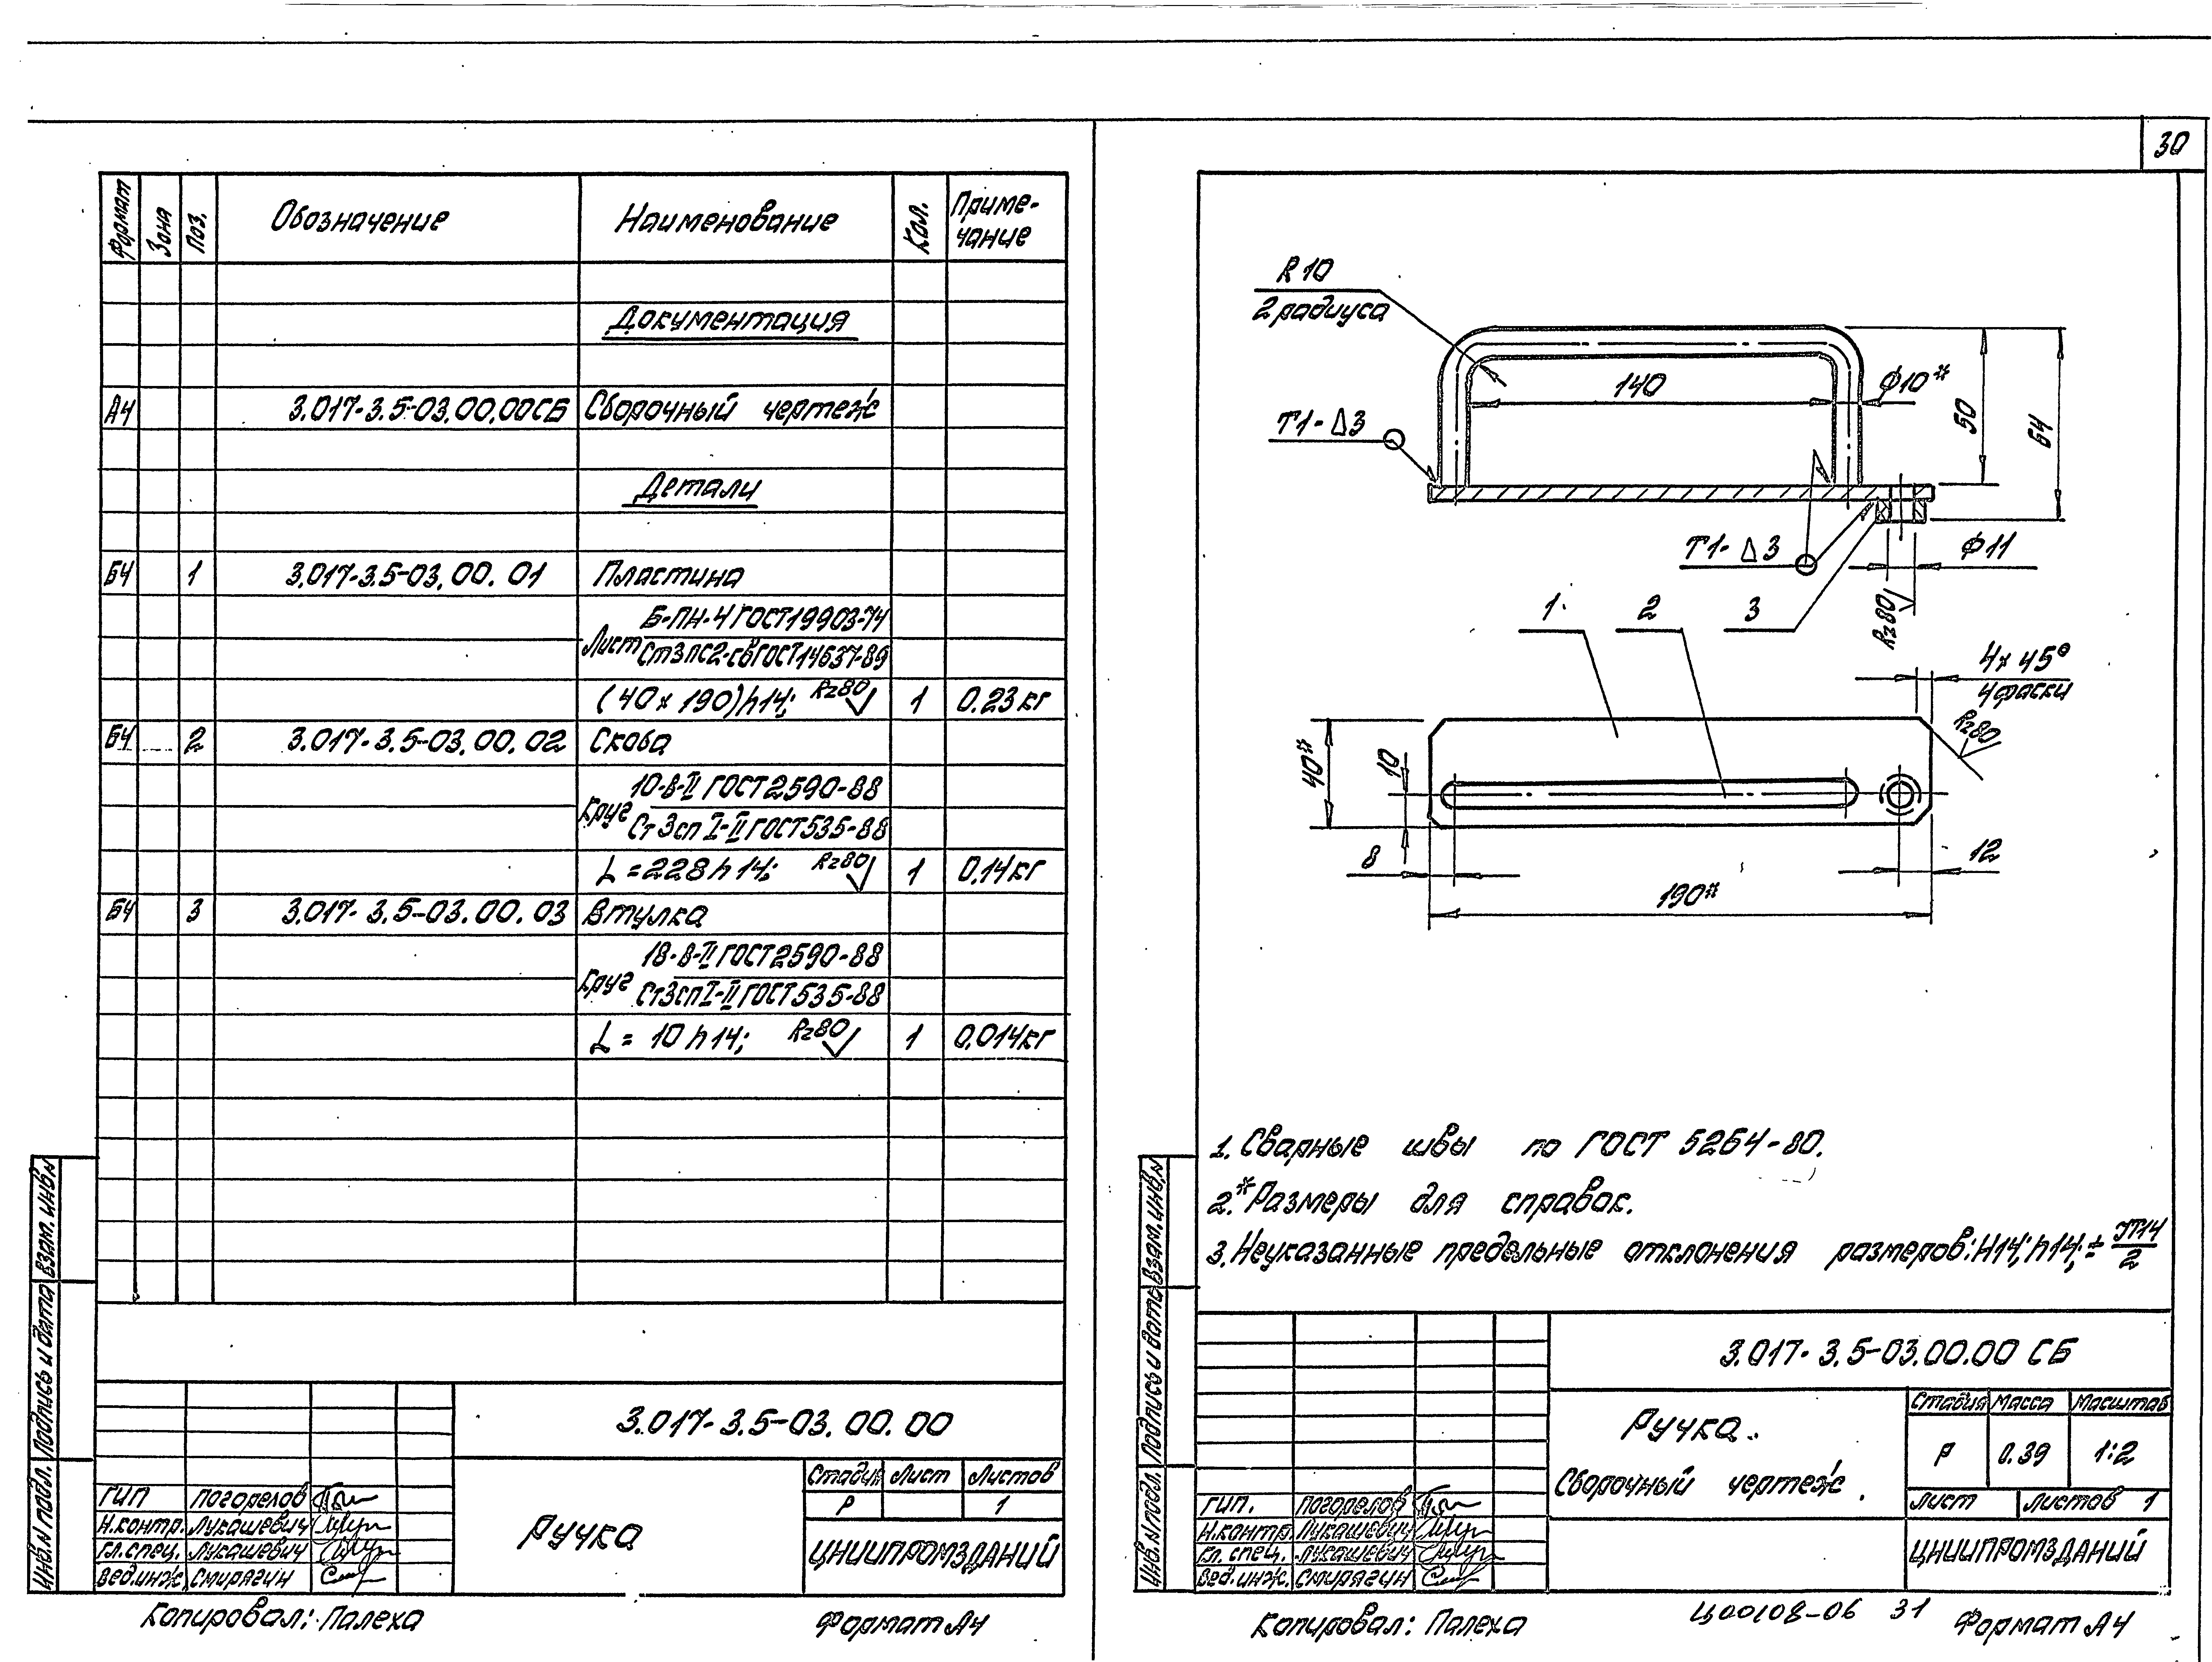 30
Формат Зона Поз. Обозначение Наименование Кол. Приме-
чание
Документация
А4 3.017-3.5-03.00.00СБ Сборочный чертеж
Детали
Б4 1 3.017-3.5-03.00.01 Пластина
Лист Б-ПН-4 ГОСТ19903-74
Ст3пс2-св ГОСТ14637-89
(40х190)h14; Rz80 1 0.23кг
Б4 2 3.017-3.5-03.00.02 Скоба
Круг 10-В-II ГОСТ2590-88
Ст3сп I-II ГОСТ535-88
L=228h14; Rz80 1 0.14кг
Б4 3 3.017-3.5-03.00.03 Втулка
Круг 18-В-II ГОСТ2590-88
Ст3сп I-II ГОСТ535-88
L=10h14; Rz80 1 0,014кг
Взам. инв. N
Подпись и дата
Инв. N подл.
3.017-3.5-03.00.00
Стадия Лист Листов
Р 1
ГИП Погорелов
Н.контр. Лукашевич
Гл.спец. Лукашевич
Вед.инж. Смирягин
Ручка
ЦНИИПРОМЗДАНИЙ
Копировал: Палеха Формат А4
R10
2 радиуса
140
Ф10*
50
64
Т1-Δ3
Т1-Δ3
Ф11
Rz80
1 2 3
4х45°
4 фаски
Rz80
40*
10
8
12
190*
1. Сварные швы по ГОСТ 5264-80.
2.* Размеры для справок.
3. Неуказанные предельные отклонения размеров: H14; h14; ± IT14/2
Взам. инв. N
Подпись и дата
Инв. N подл.
3.017-3.5-03.00.00 СБ
Ручка.
Сборочный чертеж.
Стадия Масса Масштаб
Р 0.39 1:2
Лист Листов 1
ГИП. Погорелов
Н.контр. Лукашевич
Гл. спец. Лукашевич
Вед.инж. Смирягин
ЦНИИПРОМЗДАНИЙ
Копировал: Палеха Ц00108-06 31 Формат А4